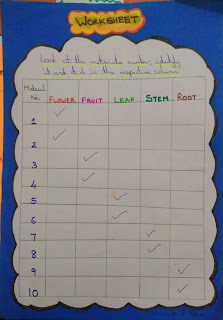 WORKSHEET
Look at the materials number, identify
it and tick in the respective column
Material No. FLOWER FRUIT LEAF STEM ROOT
1 ✓
2 ✓
3 ✓
4 ✓
5 ✓
6 ✓
7 ✓
8 ✓
9 ✓
10 ✓